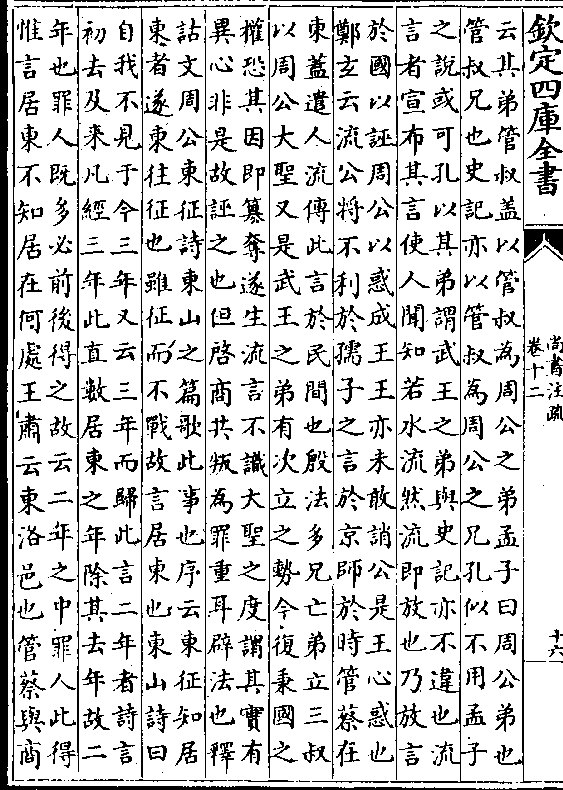 欽定四庫全書
尚書注疏
卷十二
十六
云其弟管叔盖以管叔為周公之弟孟子曰周公弟也
管叔兄也史記亦以管叔為周公之兄孔似不用孟子
之說或可孔以其弟謂武王之弟與史記亦不違也流
言者宣布其言使人聞知若水流然流即放也乃放言
於國以誣周公以惑成王王亦未敢誚公是王心惑也
鄭玄云流公將不利於孺子之言於京師於時管蔡在
東蓋遣人流傳此言於民間也殷法多兄亡弟立三叔
以周公大聖又是武王之弟有次立之勢今復秉國之
權恐其因即篡奪遂生流言不識大聖之度謂其實有
異心非是故誣之也但啓商共叛為罪重耳辟法也釋
詁文周公東征詩東山之篇歌此事也序云東征知居
東者遂東往征也雖征而不戰故言居東也東山詩曰
自我不見于今三年又云三年而歸此言二年者詩言
初去及来凡經三年此直數居東之年除其去年故二
年也罪人既多必前後得之故云二年之中罪人此得
惟言居東不知居在何處王肅云東洛邑也管蔡與商